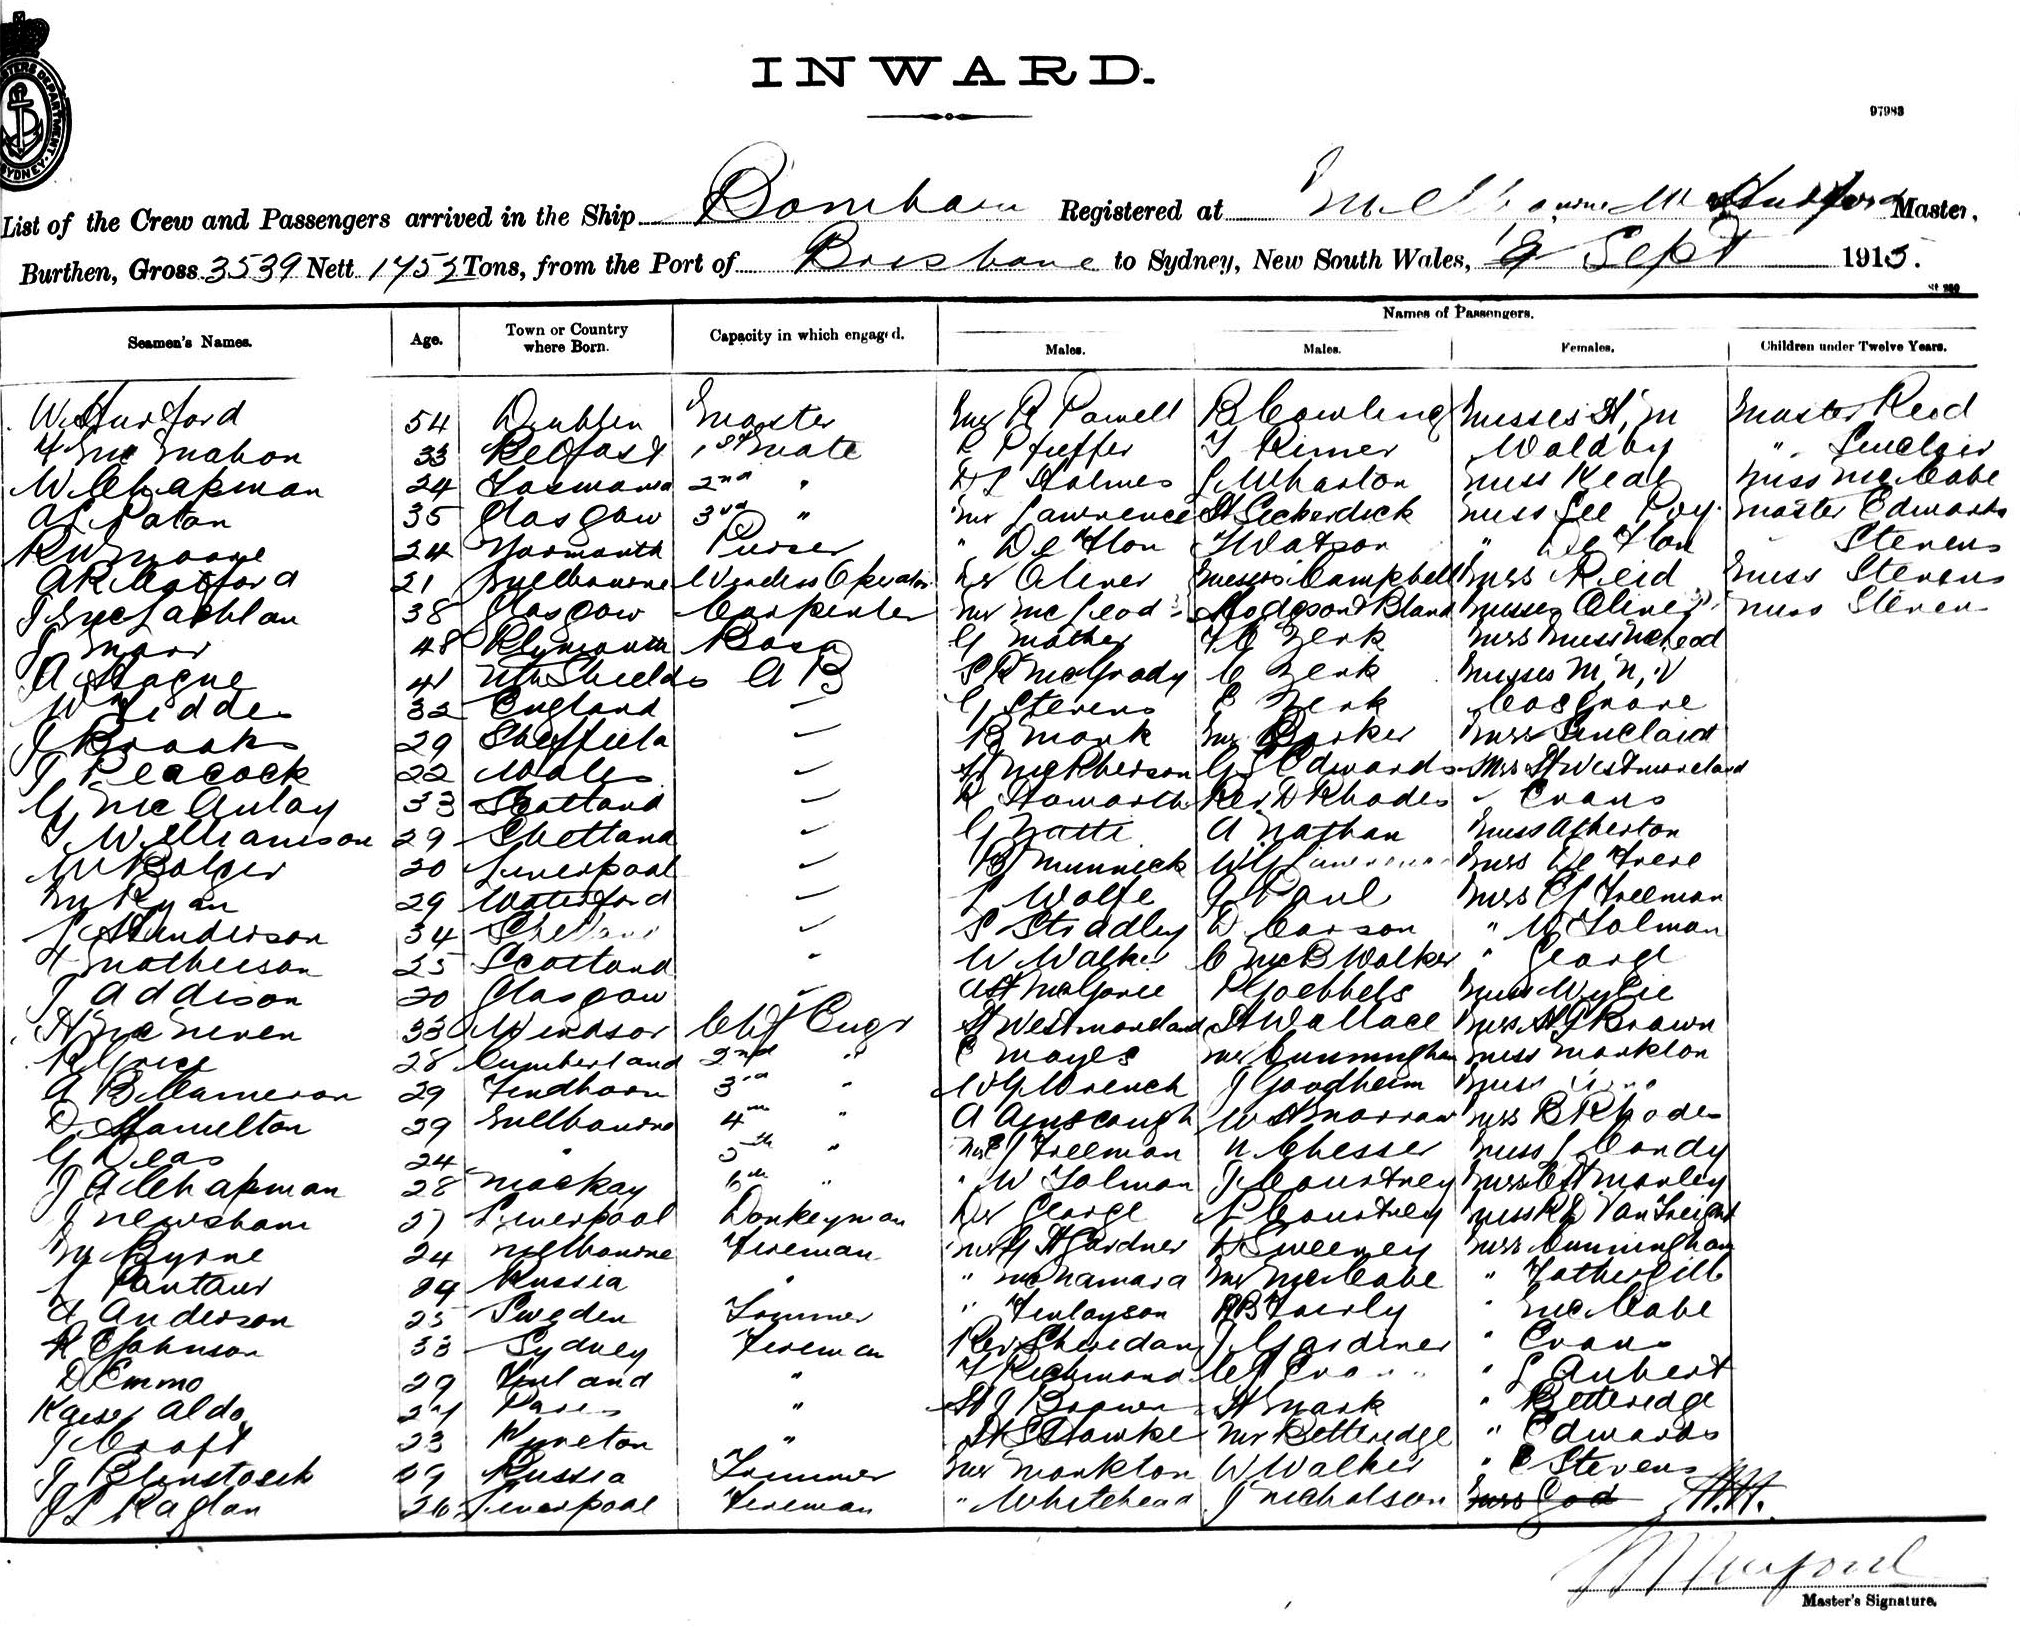 INWARD.
97983
List of the Crew and Passengers arrived in the Ship Bombala Registered at Melbourne W Hurford Master,
Burthen, Gross 3539 Nett 1753 Tons, from the Port of Brisbane to Sydney, New South Wales, 9 Sept 1915.
Names of Passengers.
Seamen's Names. Age. Town or Country where Born. Capacity in which engaged. Males. Males. Females. Children under Twelve Years.
W Hurford 54 Dublin Master Mr R Powell R Cowling Misses H, M Master Reid
F McMahon 33 Belfast 1st Mate Pfieffer T Rimer Waldby " Sinclair
W Chapman 24 Tasmania 2nd " Holmes Wharton Miss Keal Miss McCabe
A L Paton 35 Glasgow 3rd " Mr Lawrence Miss Lee Roy Master Edwards
R W Moore 24 Yarmouth Purser " T Watson " Stevens
A R 21 Melbourne Wireless Operator Dr Oliver Messrs Campbell Mrs Reid Miss Stevens
J McLachlan 38 Glasgow Carpenter Mr McLeod Hodgson & Bland Misses Oliver Miss Steven
J Marr 48 Plymouth Bosn G Mather Zerk Mrs
A Hague 41 Nth Shields A B S R McGrady C Zerk Misses M, N, V
W 32 England — G Stevens E Zerk Cosgrove
J Brooks 29 Sheffield — B Monk Mr Barker Mrs Sinclair
J Peacock 22 Wales — H McPherson G S Edwards Mrs H Westmoreland
G McAulay 33 Scotland — Haworth Rev D Rhodes " Evans
T Williamson 29 Shetland — G A Nathan Miss Atherton
M Bolger 20 Liverpool — Minnick Mrs De
M Ryan 29 Waterford — L Wolfe J Paul Mrs C J Freeman
Henderson 34 — S Stradley D Carson " W Tolman
F Matheson 25 Scotland W Walker C McB Walker " George
J Addison 20 Glasgow P Goebbels Wylie
H McNiven 33 Windsor Chf Engr H Westmoreland H Wallace Mrs H J Brown
R Grice 28 Cumberland 2nd " C Mayes Mr Cunningham Miss Monkton
A B Cameron 29 Findhorn 3rd " W G Wrench J Goodheim Miss
D Hamilton 29 Melbourne 4th " A Ainscough W H Morrow Mrs B Rhodes
G Deas 24 " 5th " Mr C J Freeman N Chesser Miss J Cordy
J A Chapman 28 Mackay 6th " " W Tolman J Courtney Mrs C H Morley
J Newsham 27 Liverpool Donkeyman Dr George Courtney Miss
M Byrne 24 Melbourne Fireman Mr G H Gardner D Sweeney Mrs Cunningham
Russia " " McNamara Mr McCabe " Fothergill
F Anderson 25 Sweden Trimmer " Finlayson R B Fairly " McCabe
R E Johnson 33 Sydney Fireman Rev Sheridan J Gardiner " Evans
D Emmo 29 Finland " T Richmond " L Aubert
Kaiser Aldo Paris " H J Brown H Mark " Betteridge
J Croft 23 Kyneton " Hawke Mr Betteridge " Edwards
J 29 Russia Trimmer Mr Monkton W Walker " Stevens
J L Raglan 26 Liverpool Fireman " Whitehead J Nicholson
W Hurford
Master's Signature.